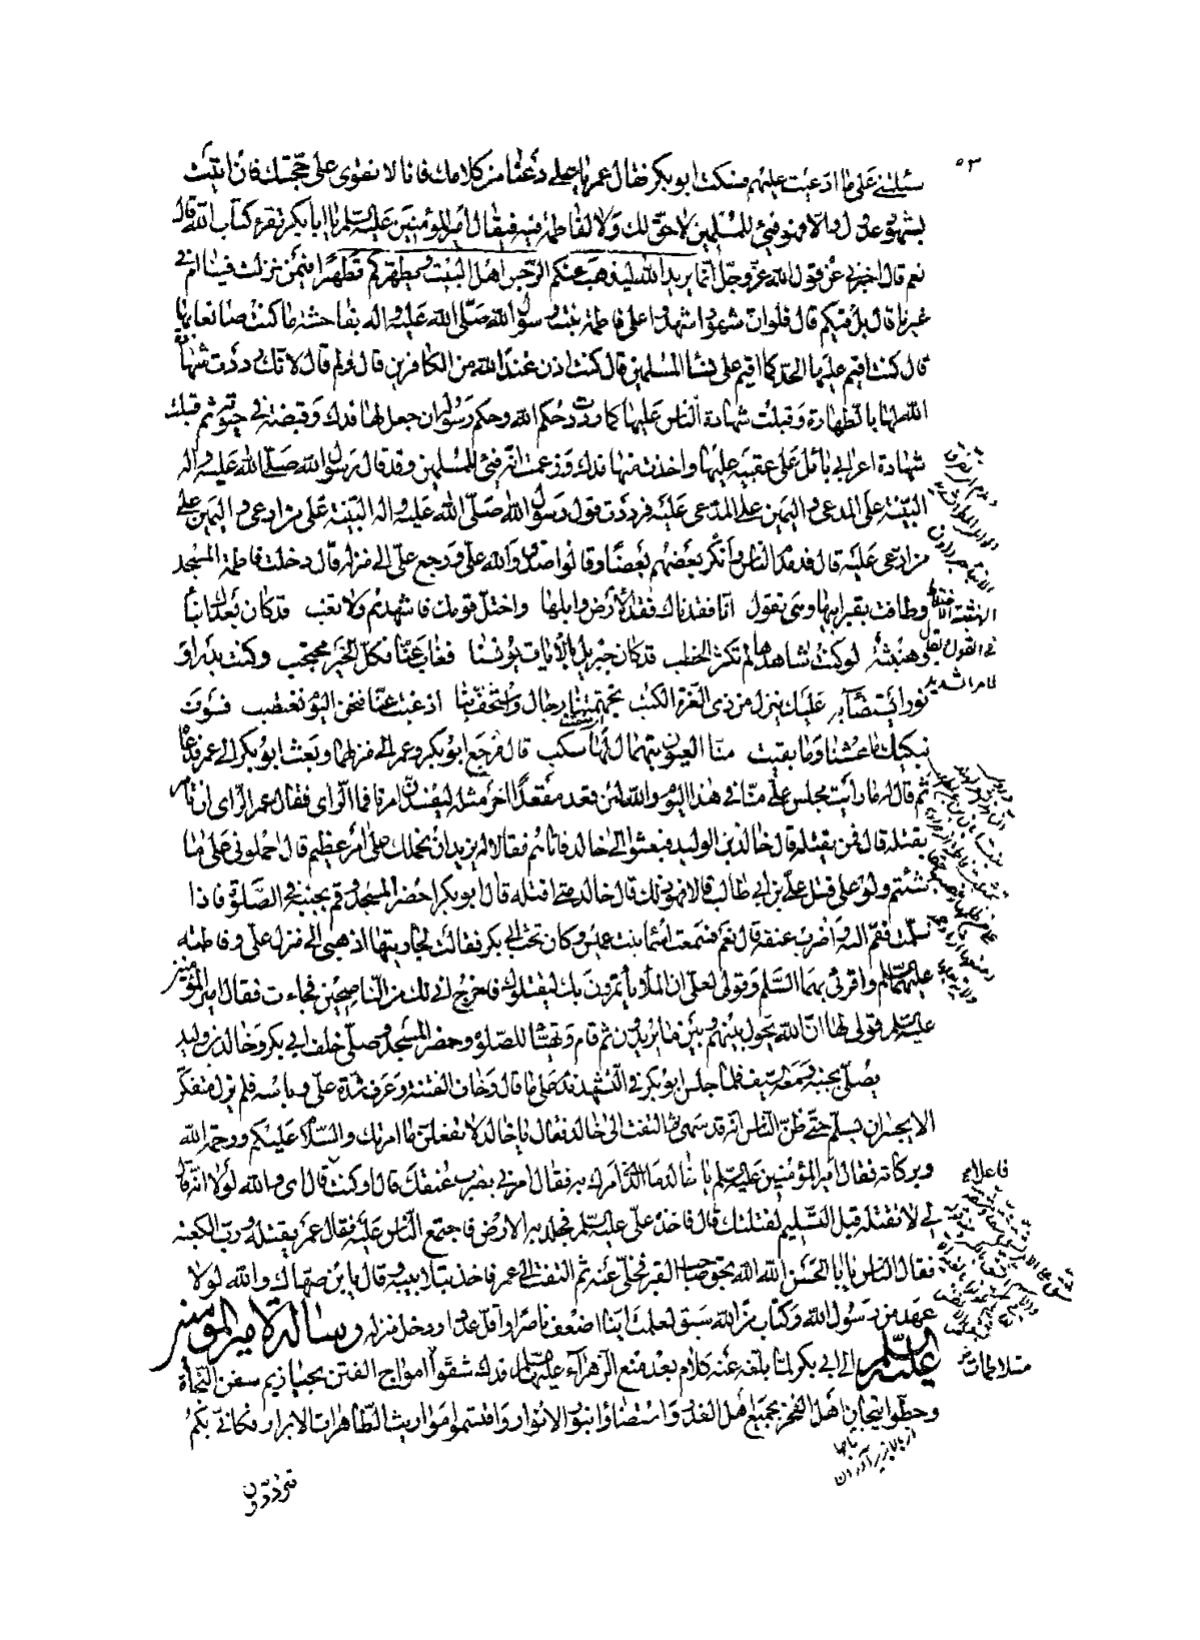 ٥٣
سئلتني على ما ادعيت عليهم فسكت ابو بكر فقال عمر يا علي دعنا من كلامك فانا لا نقوى على حجتك فان اتيت
بشهود عدول والا فهو فيئ للمسلمين لا حق لك ولا لفاطمة فيه فقال امير المؤمنين عليه السلم يا ابا بكر تقرء كتاب الله قال
نعم قال اخبرني عن قول الله عز وجل انما يريد الله ليذهب عنكم الرجس اهل البيت ويطهركم تطهيرا فيمن نزلت فينا ام في
غيرنا قال بل فيكم قال فلو ان شهودا شهدوا على فاطمة بنت رسول الله صلى الله عليه واله بفاحشة ما كنت صانعا بها
قال كنت اقيم عليها الحد كما اقيم على نساء المسلمين قال كنت اذن عند الله من الكافرين قال ولم قال لانك رددت شهادة
الله لها بالطهارة وقبلت شهادة الناس عليها كما رددت حكم الله وحكم رسوله ان جعل لها فدك وقبضته في حيوته ثم قبلت
شهادة اعرابي بائل على عقبيه عليها واخذت منها فدك وزعمت انه فيئ للمسلمين وقد قال رسول الله صلى الله عليه واله
البينة على المدعي واليمين على المدعى عليه فرددت قول رسول الله صلى الله عليه واله البينة على من ادعى واليمين على
من ادعي عليه قال فدمدم الناس وانكر بعضهم بعضا وقالوا صدق والله علي ورجع علي الى منزله قال ودخلت فاطمة المسجد
وطافت بقبر ابيها وهي تقول انا فقدناك فقد الارض وابلها واختل قومك فاشهدهم ولا تغب قد كان بعدك انباء
وهنبثة لو كنت شاهدها لم تكثر الخطب قد كان جبريل بالايات يونسنا فغاب عنا فكل الخير محتجب وكنت بدرا و
نورا يستضاء به عليك ينزل من ذي العزة الكتب تجهمتنا رجال واستخف بنا اذ غبت عنا فنحن اليوم نغتصب فسوف
نبكيك ما عشنا وما بقيت منا العيون بتهمال لها سكب قال فرجع ابو بكر وعمر الى منزلهما وبعث ابو بكر الى عمر فدعاه
ثم قال له ما رأيت مجلس علي منا في هذا اليوم والله لئن قعد مقعدا اخر مثله ليفسدن امرنا فما الراى فقال عمر الراى ان تامر
بقتله قال فمن يقتله قال خالد بن الوليد فبعثوا الى خالد فاتاهم فقالا له نريد ان نحملك على امر عظيم قال احملوني على ما
شئتم ولو على قتل علي بن ابي طالب قالا فهو ذلك قال خالد متى اقتله قال ابو بكر احضر المسجد وقم بجنبه في الصلوة فاذا
سلمت فقم اليه واضرب عنقه قال نعم فسمعت اسماء بنت عميس وكان تحت ابي بكر فقالت لجاريتها اذهبي الى منزل علي وفاطمة
عليهما السلم واقرئيهما السلم وقولي لعلي ان الملأ ياتمرون بك ليقتلوك فاخرج اني لك من الناصحين فجاءت فقال امير المؤمنين
عليه السلم قولي لها ان الله يحول بينهم وبين ما يريدون ثم قام وتهيئا للصلوة وحضر المسجد وصلى خلف ابي بكر وخالد بن وليد
يصلي بجنبه ومعه السيف فلما جلس ابو بكر في التشهد ندم على ما قال وخاف الفتنة وعرف شدة علي وباسه فلم يزل متفكرا
لا يجسر ان يسلم حتى ظن الناس انه قد سهى ثم التفت الى خالد فقال يا خالد لا تفعلن ما امرتك والسلام عليكم ورحمة الله
وبركاته فقال امير المؤمنين عليه السلم يا خالد ما الذي امرك به فقال امرني بضرب عنقك قال اوكنت قال اى والله لولا انه قال
لي لا تقتله قبل التسليم لقتلتك قال فاخذه علي عليه السلم فجلد به الارض فاجتمع الناس عليه فقال عمر يقتله ورب الكعبة
فقال الناس يا ابا الحسن الله الله بحق صاحب القبر فخلى عنه ثم التفت الى عمر فاخذ بتلابيبه وقال يا بن صهاك والله لولا
عهد من رسول الله وكتاب من الله سبق لعلمت اينا اضعف ناصرا واقل عددا ودخل منزله رسالة لامير المؤمنين
عليه السلم الى ابي بكر لما بلغه عنه كلام بعد منع الزهراء عليها السلم فدك شقوا امواج الفتن بحيازيم سفن النجاة
وحطوا تيجان اهل الفخر بجميع اهل الغدر واستضاؤا بنور الانوار واقتسموا مواريث الطاهرات الابرار فكاني بكم
تترددون